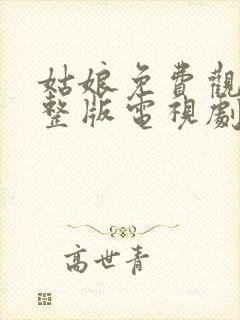 姑娘免費觀
整版電視劇
高世青